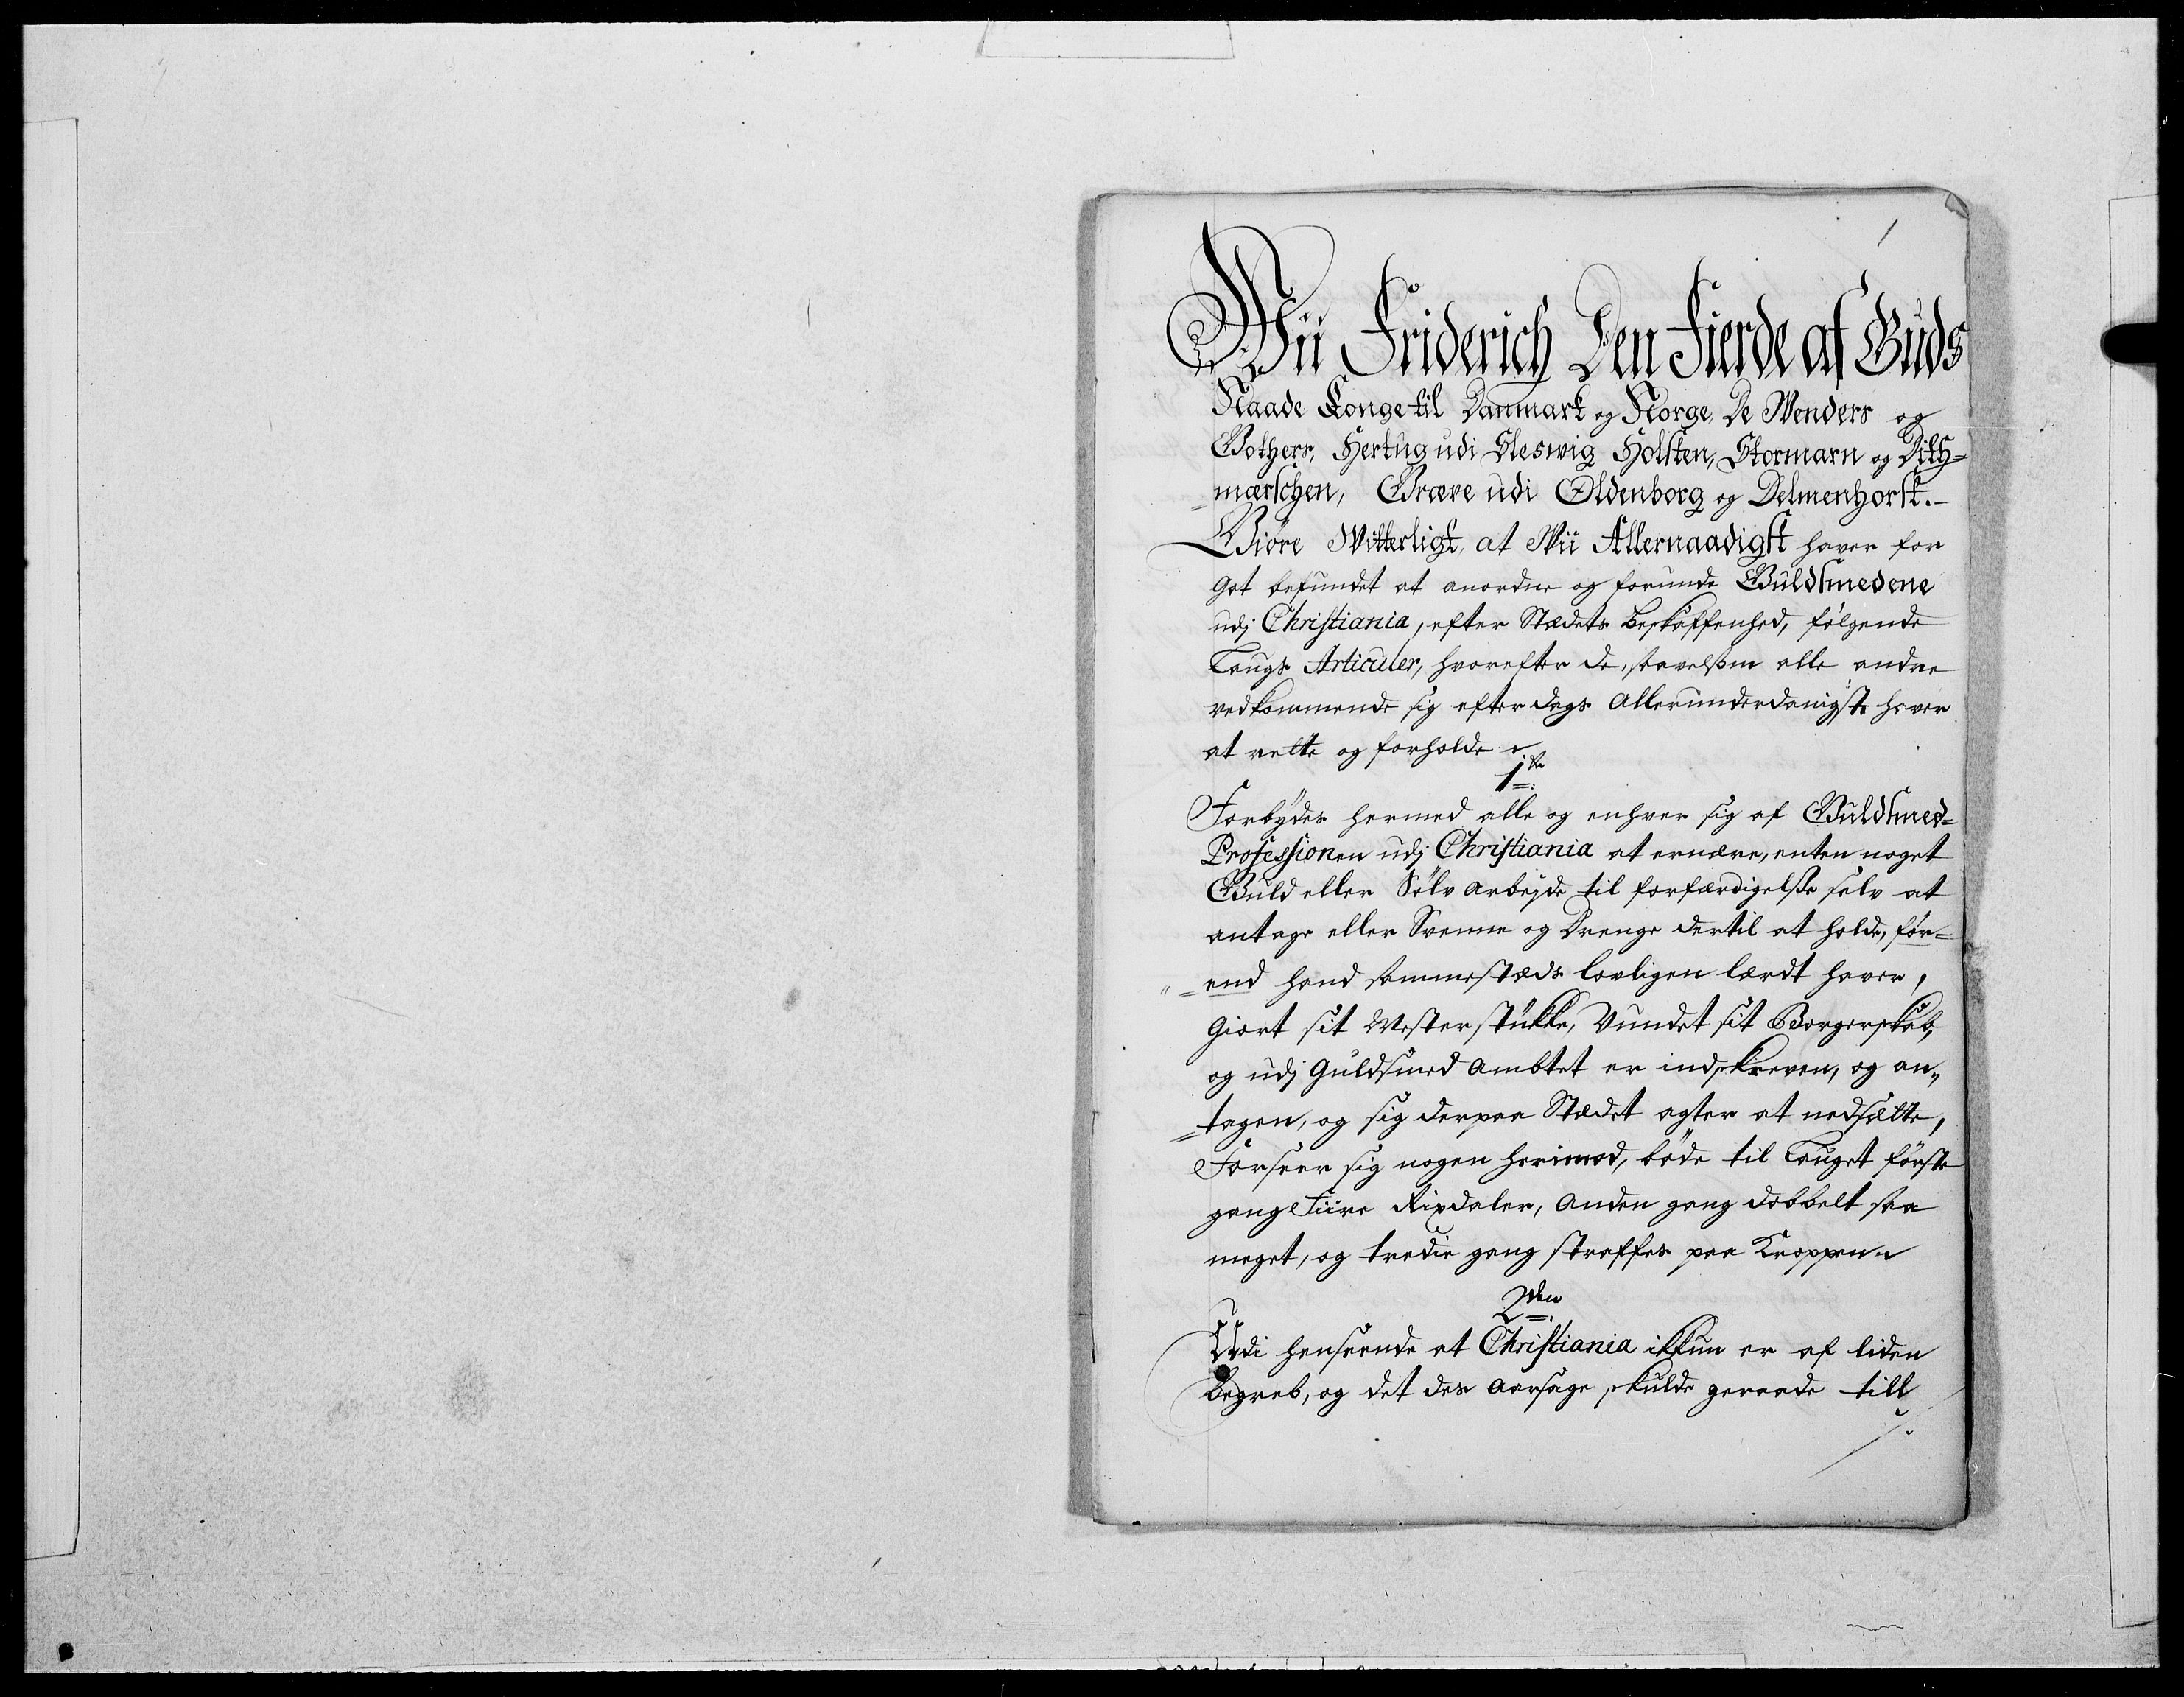 1
Wii Friderich Den Fierde af Guds
Naade Konge til Danmark og Norge, De Wenders og
Gothers, Hertug udi Sleswig Holsten, Stormarn og Dith=
=mærschen, Græve udi Oldenborg og Delmenhorst.-
Giøre Witterligt, at Wii Allernaadigst haver for
got befundet at anordne og forunde Guldsmedene
udj Christiania, efter Stædets Beskaffenhed, følgende
Laugs Articuler, hvorefter de, saavelsom alle andre
vedkommende sig efter dags Allerunderdanigste haver
at rette og forholde
1ste
Forbydes hermed alle og enhver sig af Guldsmed=
Professionen udj Christiania at ernære, enten noget
Guld eller Sølv arbejde til forfærdigelse selv at
antage eller Svenne og Drenge dertil at holde, før=
=end hand sammestæds lovligen lærdt haver,
Giort sit Mesterstykke, Vundet sit Borgerskab,
og udj Guldsmed Ambtet er indskreven, og an„
=tagen, og sig derpaa Stædet agter at nedsætte,
Forseer sig nogen herimod, bøde til Lauget første
gang Fiire Rixdaler, Anden gang dobbelt saa
meget, og tredie gang straffes paa Kroppen
2den
Udi henseende at Christiania ikkun er af liden
begreb, og det des Aarsage skulde geraade till